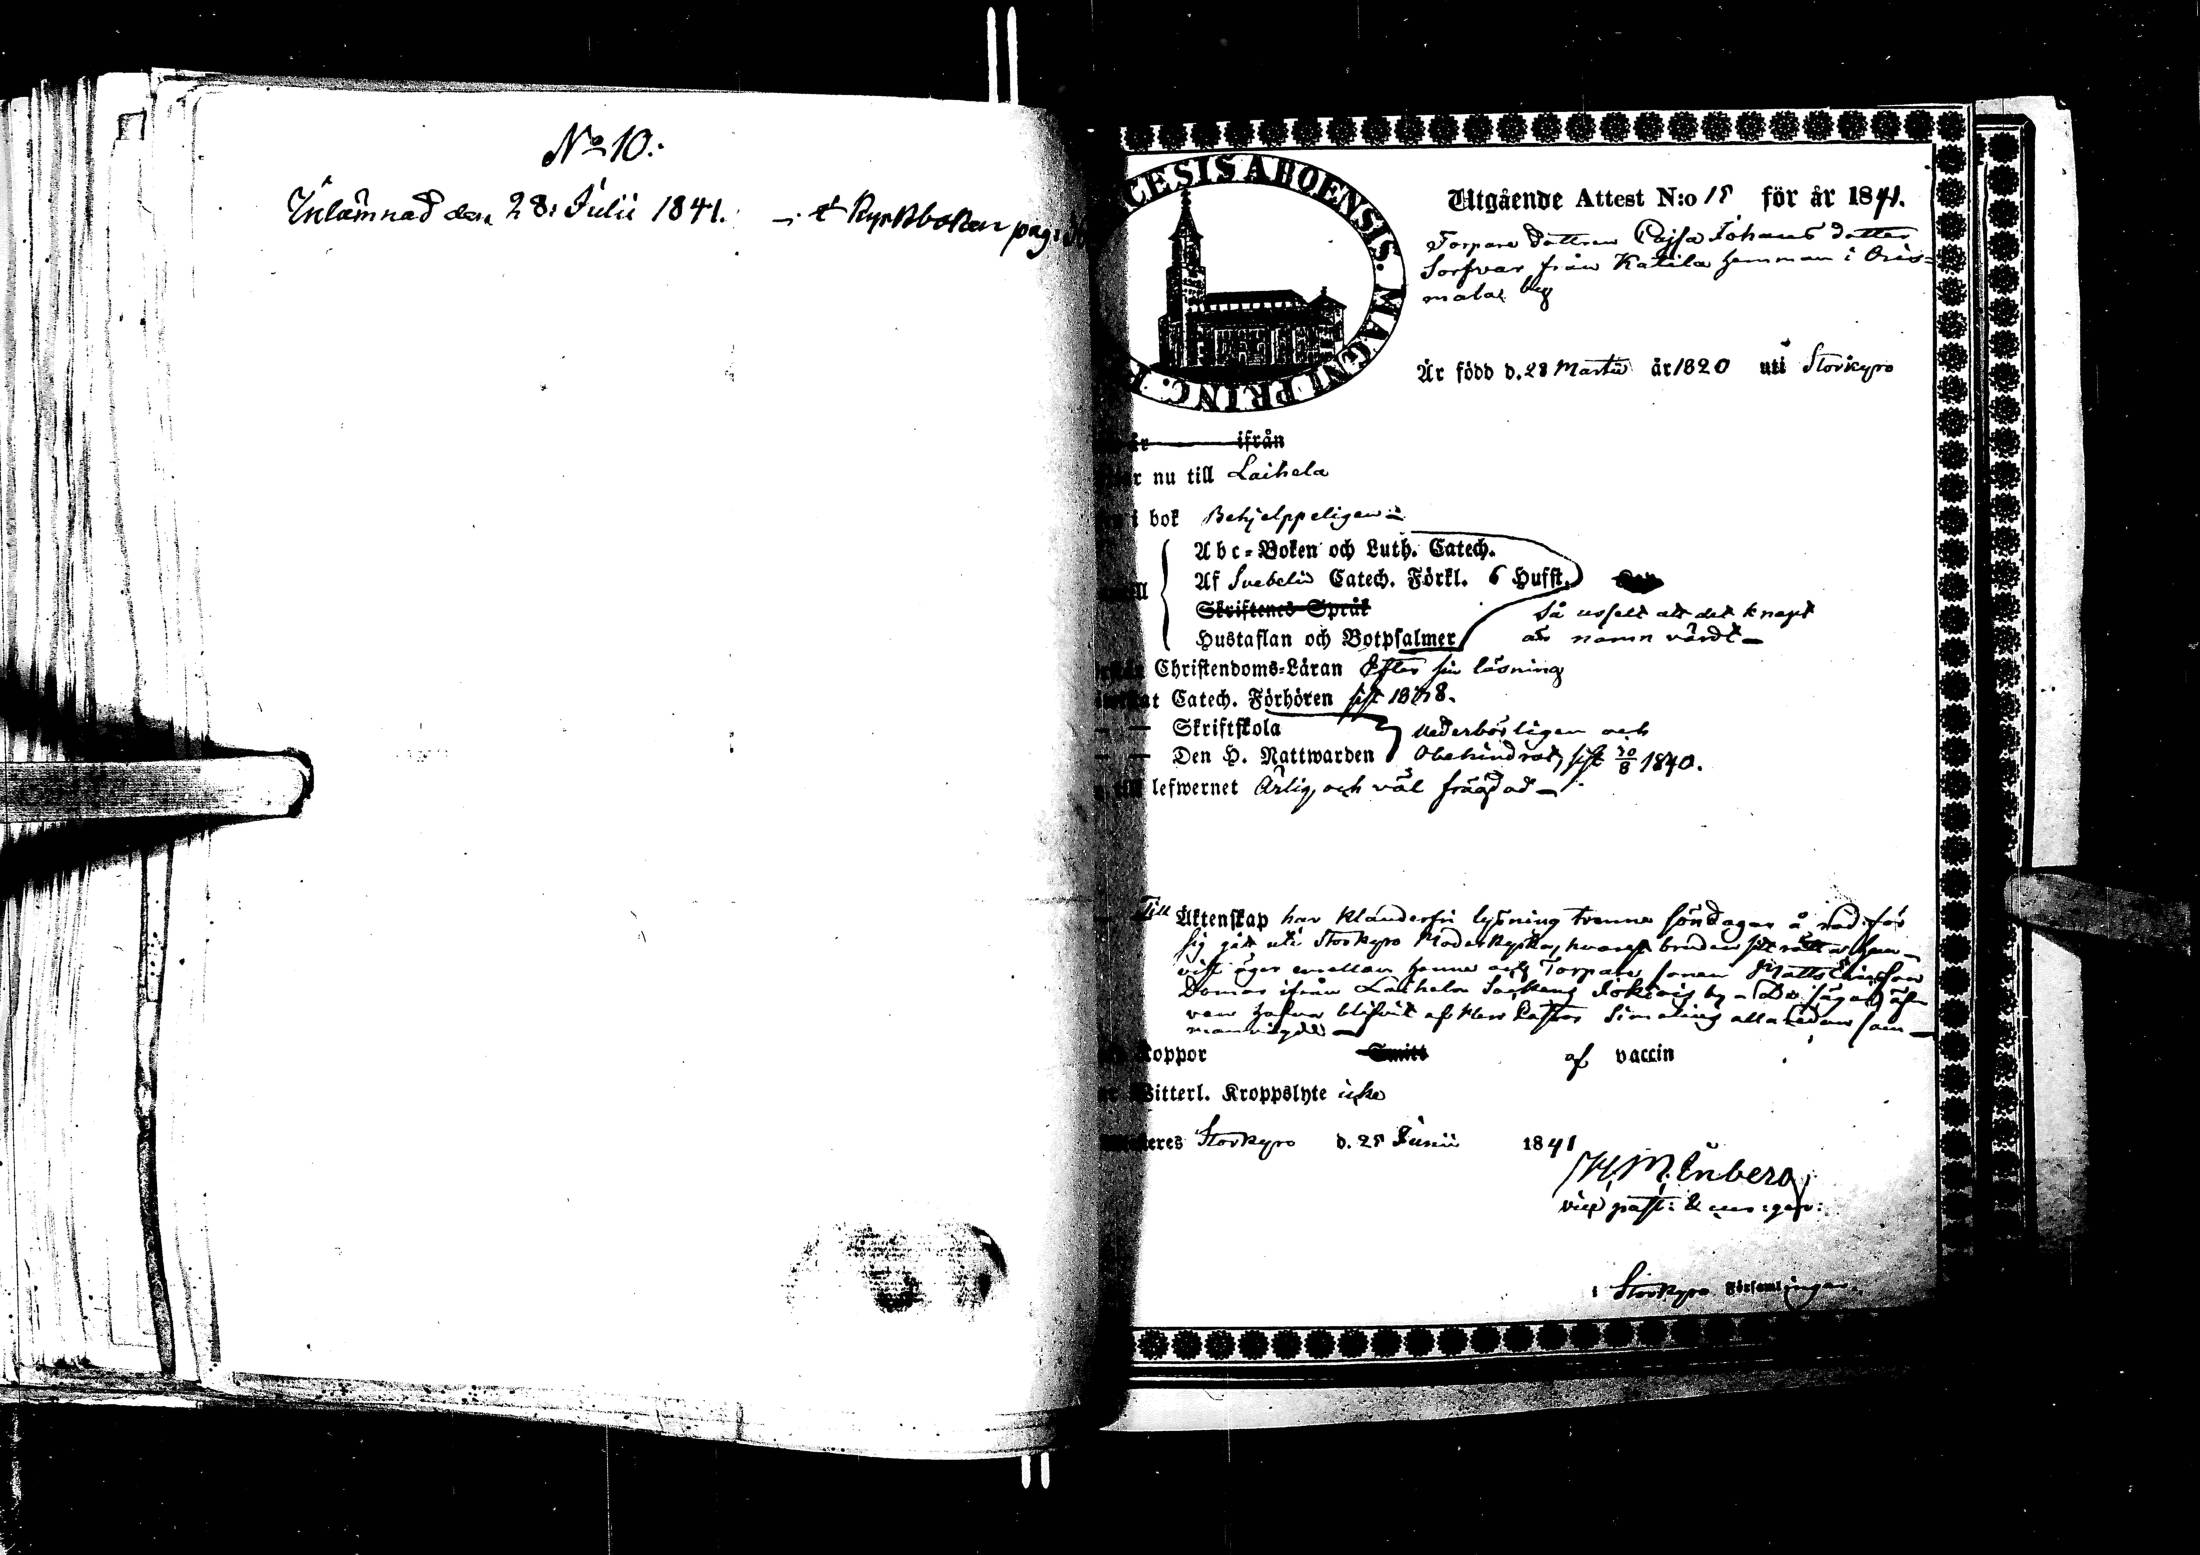 No 10.
Inlämnad den 28: Julii 1841. — i Kyrkboken pag:
CESIS ABOENSIS. MAGNI PRINC.
Utgående Attest N:o för år 1841.
Torpare dottren Cajsa Johans dotter
Sorfvar från Katila hemman i Oris=
mala by
Är född d. 28 Martii år 1820 uti Storkyro
ifrån
nu till Laihela
i bok Behjelppeligen
Abc=Boken och Luth. Catech.
Af Svebelii Catech. Förkl. 6 Hufst.
Skriftenes Språk
Så uselt att det knapt
Hustaflan och Botpsalmer
är namn värdt—
Christendoms=Läran Efter sin läsning
Catech. Förhören sist
— — Skriftskola
vederbörligen och
— — Den H. Nattwarden
Obehindrat, sist 1840.
till lefwernet Ärlig och väl frägdad—
Till Äktenskap har klanderfri lysning trenne söndagar å rad för
sig gått uti Storkyro Moderkyrka, hvarest bruden sitt rätta hem-
vist äger emellan henne och Torpare sonen Matts
Domar ifrån Laihela Sockens Jokisis by - De säga äf-
ven hafva blifvit af Herr Pastor Simelius allaredan sam-
manvigde—
Koppor Smitt af vaccin
Witterl. Kroppslyte icke
Storkyro d. Junii 1841
M. Enberg
vice past:
i Storkyro Församlingar.